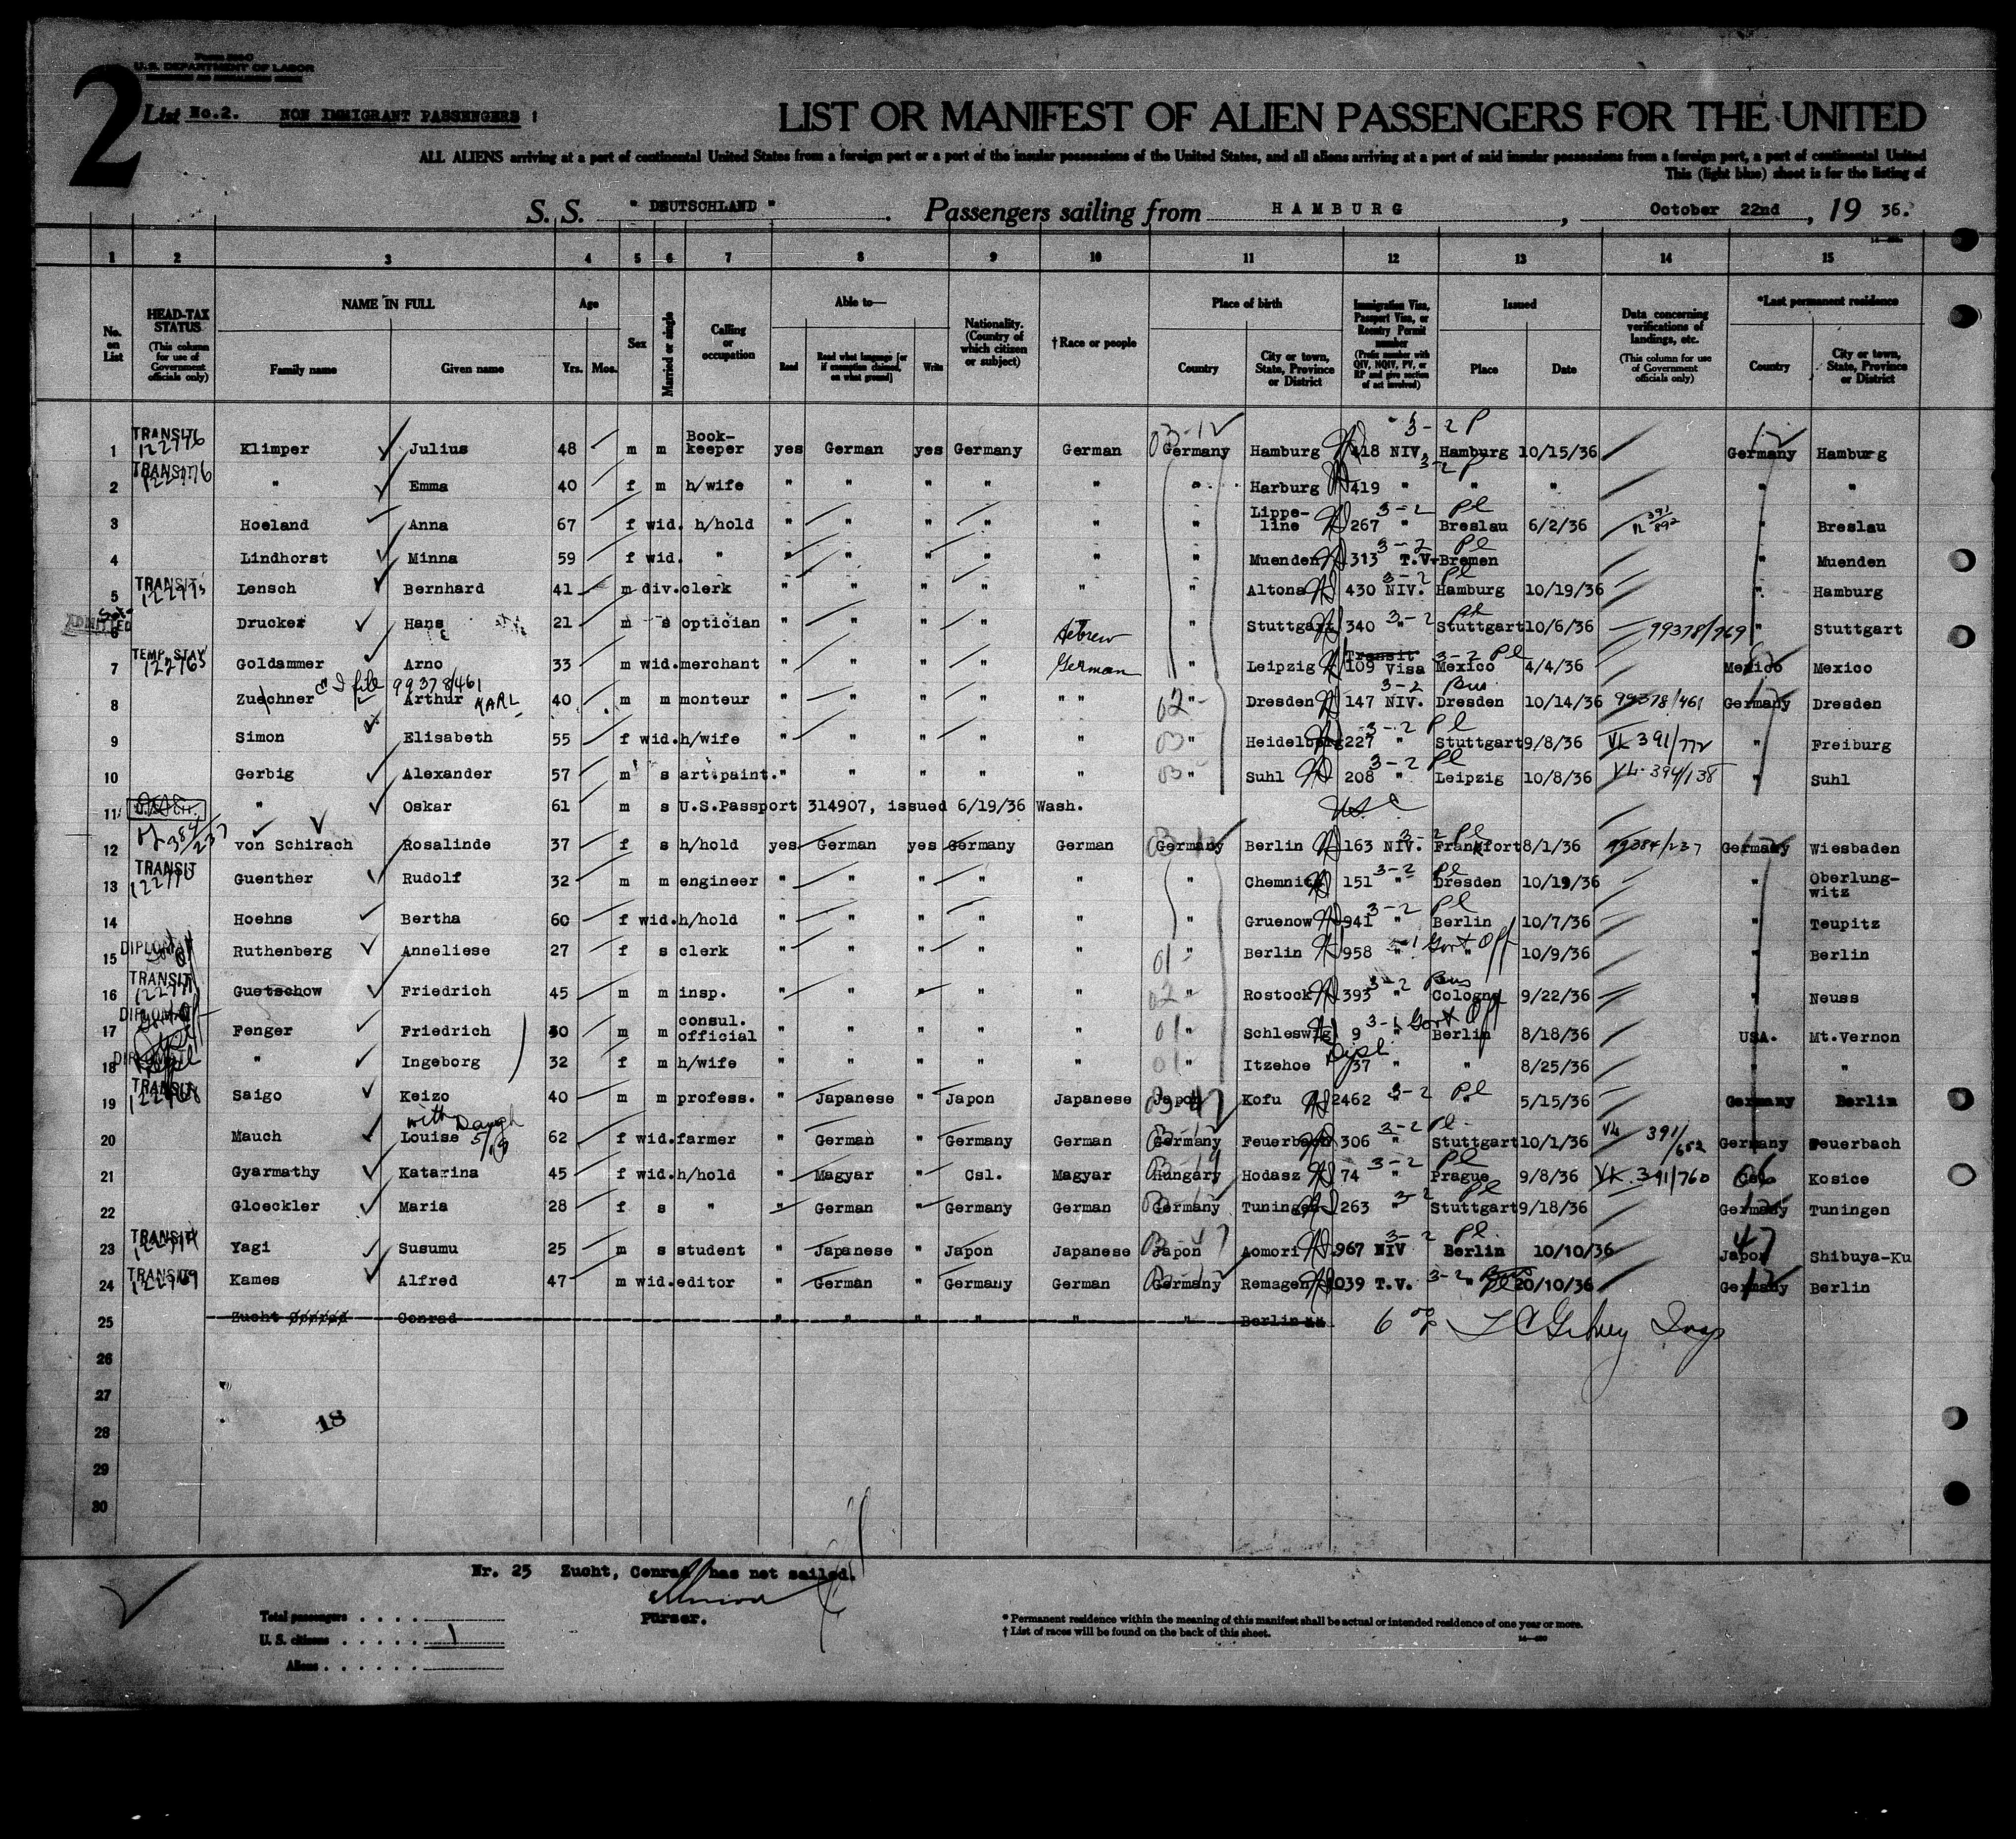 Form 500-C
U.S. DEPARTMENT OF LABOR
2
List No.2. NON IMMIGRANT PASSENGERS !
LIST OR MANIFEST OF ALIEN PASSENGERS FOR THE UNITED
ALL ALIENS arriving at a port of continental United States from a foreign port or a port of the insular possessions of the United States, and all aliens arriving at a port of said insular possessions from a foreign port, a port of continental United
This (light blue) sheet is for the listing of
S. S. " DEUTSCHLAND " . Passengers sailing from HAMBURG , October 22nd , 19 36.
1 2 3 4 5 6 7 8 9 10 11 12 13 14 15
No. on List
HEAD-TAX STATUS (This column for use of Government officials only)
NAME IN FULL
Family name Given name
Age
Yrs. Mos.
Sex
Married or single
Calling or occupation
Able to—
Read Read what language [or if exemption claimed, on what ground] Write
Nationality. (Country of which citizen or subject)
† Race or people
Place of birth
Country City or town, State, Province or District
Immigration Visa, Passport Visa, or Reentry Permit number (Prefix number with QIV, NQIV, PV, or RP and give section of act involved)
Issued
Place Date
Data concerning verifications of landings, etc. (This column for use of Government officials only)
*Last permanent residence
Country City or town, State, Province or District
1 TRANSIT 122776 Klimper Julius 48 m m Book-keeper yes German yes Germany German 03-12 Germany Hamburg 418 NIV. 3-2 Pl Hamburg 10/15/36 12 Germany Hamburg
2 TRANSIT 122776 " Emma 40 f m h/wife " " " " " " Harburg 419 " 3-2 Pl " " " "
3 Hoeland Anna 67 f wid. h/hold " " " " " " Lippe-line 267 " 3-2 Pl Breslau 6/2/36 391/892 " Breslau
4 Lindhorst Minna 59 f wid. " " " " " " " Muenden 313 T.V. 3-2 Pl Bremen " Muenden
5 TRANSIT 122775 Lensch Bernhard 41 m div. clerk " " " " " " Altona 430 NIV. 3-2 Pl Hamburg 10/19/36 " Hamburg
6 ADMITTED Drucker Hans 21 m s optician " " " " Hebrew " Stuttgart 340 " 3-2 Pl Stuttgart 10/6/36 99378/769 " Stuttgart
7 TEMP. STAY 122765 Goldammer Arno 33 m wid. merchant " " " " German " Leipzig 109 Transit Visa 3-2 Pl Mexico 4/4/36 Mexico Mexico
8 Zuechner I file 99378/461 Arthur KARL 40 m m monteur " " " " " " 02 " Dresden 147 NIV. 3-2 Bus Dresden 10/14/36 99378/461 Germany Dresden
9 Simon Elisabeth 55 f wid. h/wife " " " " " 03 " Heidelberg 227 " 3-2 Pl Stuttgart 9/8/36 VL 391/772 " Freiburg
10 Gerbig Alexander 57 m s art.paint. " " " " " 03 " Suhl 208 " 3-2 Pl Leipzig 10/8/36 VL 394/138 " Suhl
11 " Oskar 61 m s U.S.Passport 314907, issued 6/19/36 Wash.
12 384/237 von Schirach Rosalinde 37 f s h/hold yes German yes Germany German Germany Berlin 163 NIV. 3-2 Pl Frankfort 8/1/36 99384/237 Germany Wiesbaden
13 TRANSIT Guenther Rudolf 32 m m engineer " " " " " " Chemnitz 151 " 3-2 Pl Dresden 10/19/36 " Oberlung-witz
14 Hoehns Bertha 60 f wid. h/hold " " " " " " Gruenow 941 " 3-2 Pl Berlin 10/7/36 " Teupitz
15 DIPLOMAT Ruthenberg Anneliese 27 f s clerk " " " " " 01 " Berlin 958 " 3-1 Govt Off " 10/9/36 " Berlin
16 TRANSIT Guetschow Friedrich 45 m m insp. " " " " " 02 " Rostock 393 " 3-2 Bus Cologne 9/22/36 " Neuss
17 DIPLOMAT Fenger Friedrich 30 m m consul. official " " " " " 01 " Schleswig 9 " 3-1 Govt Off Berlin 8/18/36 USA. Mt.Vernon
18 DIPLOMAT " Ingeborg 32 f m h/wife " " " " " 01 " Itzehoe Dipl 37 " " 8/25/36 " "
19 TRANSIT 122768 Saigo Keizo 40 m m profess. " Japanese " Japon Japanese Japon Kofu 2462 " 3-2 Pl " 5/15/36 Germany Berlin
20 Mauch Louise with Daugh 62 f wid. farmer " German " Germany German Germany Feuerbach 306 " 3-2 Pl Stuttgart 10/1/36 VL 391/652 Germany Feuerbach
21 Gyarmathy Katarina 45 f wid. h/hold " Magyar " Csl. Magyar Hungary Hodasz 74 " 3-2 Pl Prague 9/8/36 VL 391/760 Csl. Kosice
22 Gloeckler Maria 28 f s " " German " Germany German Germany Tuningen 263 " 3-2 Pl Stuttgart 9/18/36 Germany Tuningen
23 TRANSIT Yagi Susumu 25 m s student " Japanese " Japon Japanese Japon Aomori 967 NIV 3-2 Pl. Berlin 10/10/36 47 Japon Shibuya-Ku
24 TRANSIT 122769 Kames Alfred 47 m wid. editor " German " Germany German Germany Remagen 1039 T.V. 3-2 Pl " 20/10/36 12 Germany Berlin
25 Zucht Conrad Conrad " " " " " " Berlin
26
27
28
29
30
18
Nr. 25 Zucht, Conrad has not sailed.
Purser.
Total passengers . . . .
U. S. citizens . . . . . 1
Aliens . . . . . .
* Permanent residence within the meaning of this manifest shall be actual or intended residence of one year or more.
† List of races will be found on the back of this sheet.